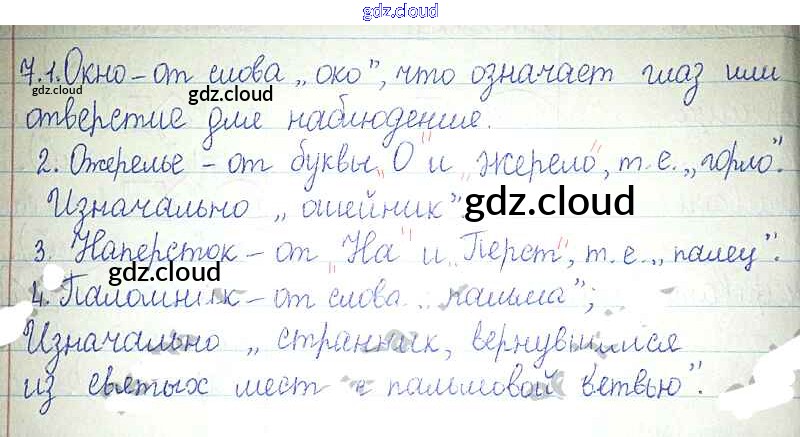 gdz.cloud
7.1. Окно – от слова „око", что означает глаз или
gdz.cloud
отверстие для наблюдение.
2. Ожерелье – от буквы „О" и „жерело", т.е. „горло".
Изначально „ошейник".
gdz.cloud
3. Наперсток – от „На" и „Перст", т.е. „палец".
gdz.cloud
4. Паломник – от слова „пальма";
Изначально „странник, вернувшийся
из святых мест с пальмовой ветвью".